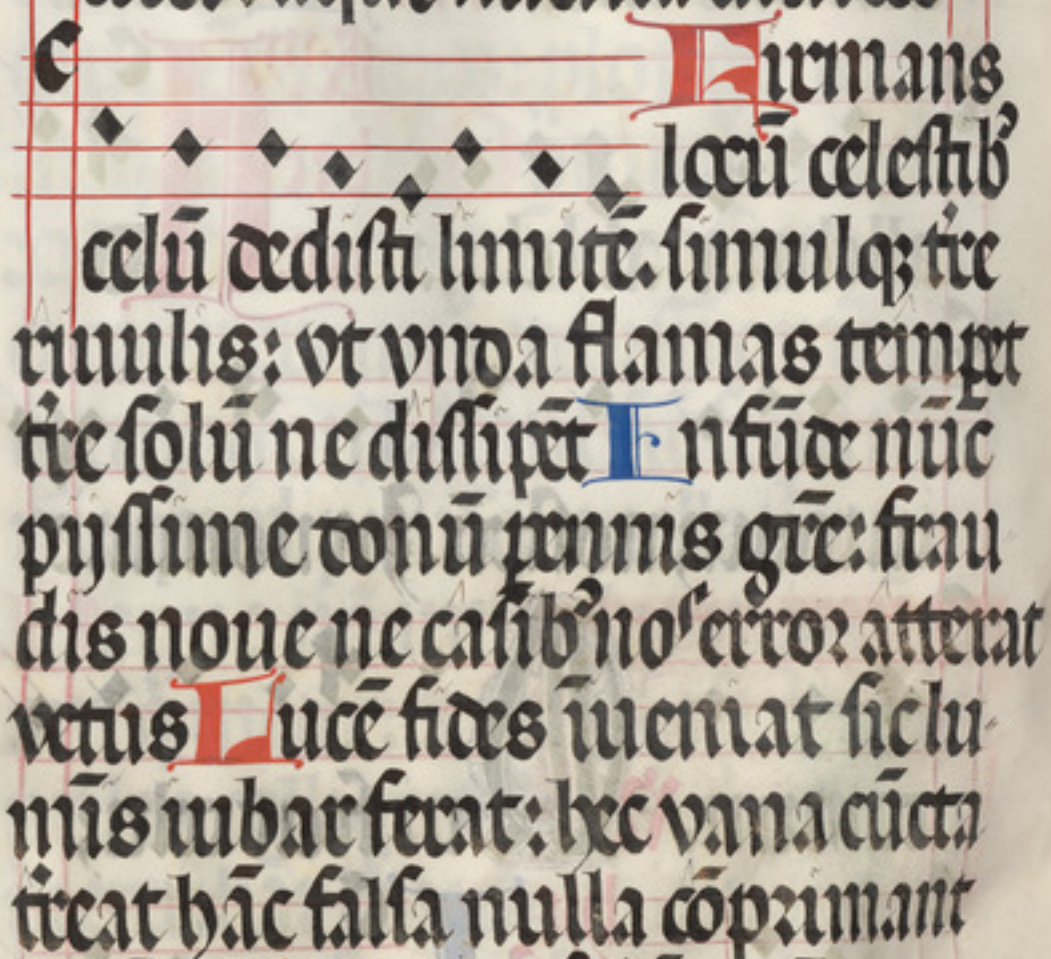 Firmans
locū celestibꝰ
celū dedisti limitē. simulqꝫ t̾re
riuulis: vt vnda flamas tempet
t̾re solū ne dissipēt Infūde nūc
pijssime donū ꝑennis gr̄e: frau
dis noue ne casibꝰ nos error atterat
vetus Lucē fides īueniat sic lu-
mīs iubar ferat: hec vana cūcta
t̾reat hāc falsa nulla cōprimant